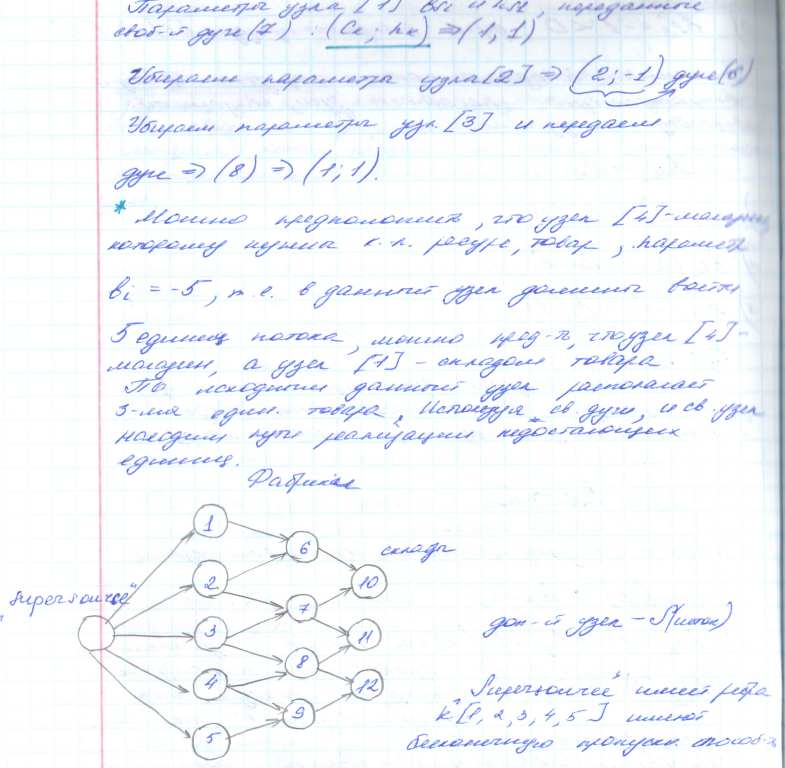 Параметры узла [1] bsi и hsi, переданные
своб-й дуге (7) : (Ck; hk) ⇒ (1, 1)
Убираем параметры узла [2] ⇒ (2; -1) дуге (6)
Убираем параметры узл. [3] и передаем
дуге ⇒ (8) ⇒ (1; 1).
* Можно предположить, что узел [4]-магазин,
которому нужна к.-л. ресурс, товар, параметр
bi = -5, т.е. в данный узел должны войти
5 единиц потока, можно пред-ть, что узел [4] -
магазин, а узел [1] - складом товара.
По исходным данный узел располагает
3-мя един. товара. Используя св. дуги, и св. узел
находим пути реализации недостающих
единиц.
Фабрики
1
6
склады
2
10
"supersource"
7
3
11
доп-й узел - S(исток)
8
4
12
"Supersource" имеет ребра
9
к [1, 2, 3, 4, 5] имеют
5
бесконечную пропускн. способ-ть